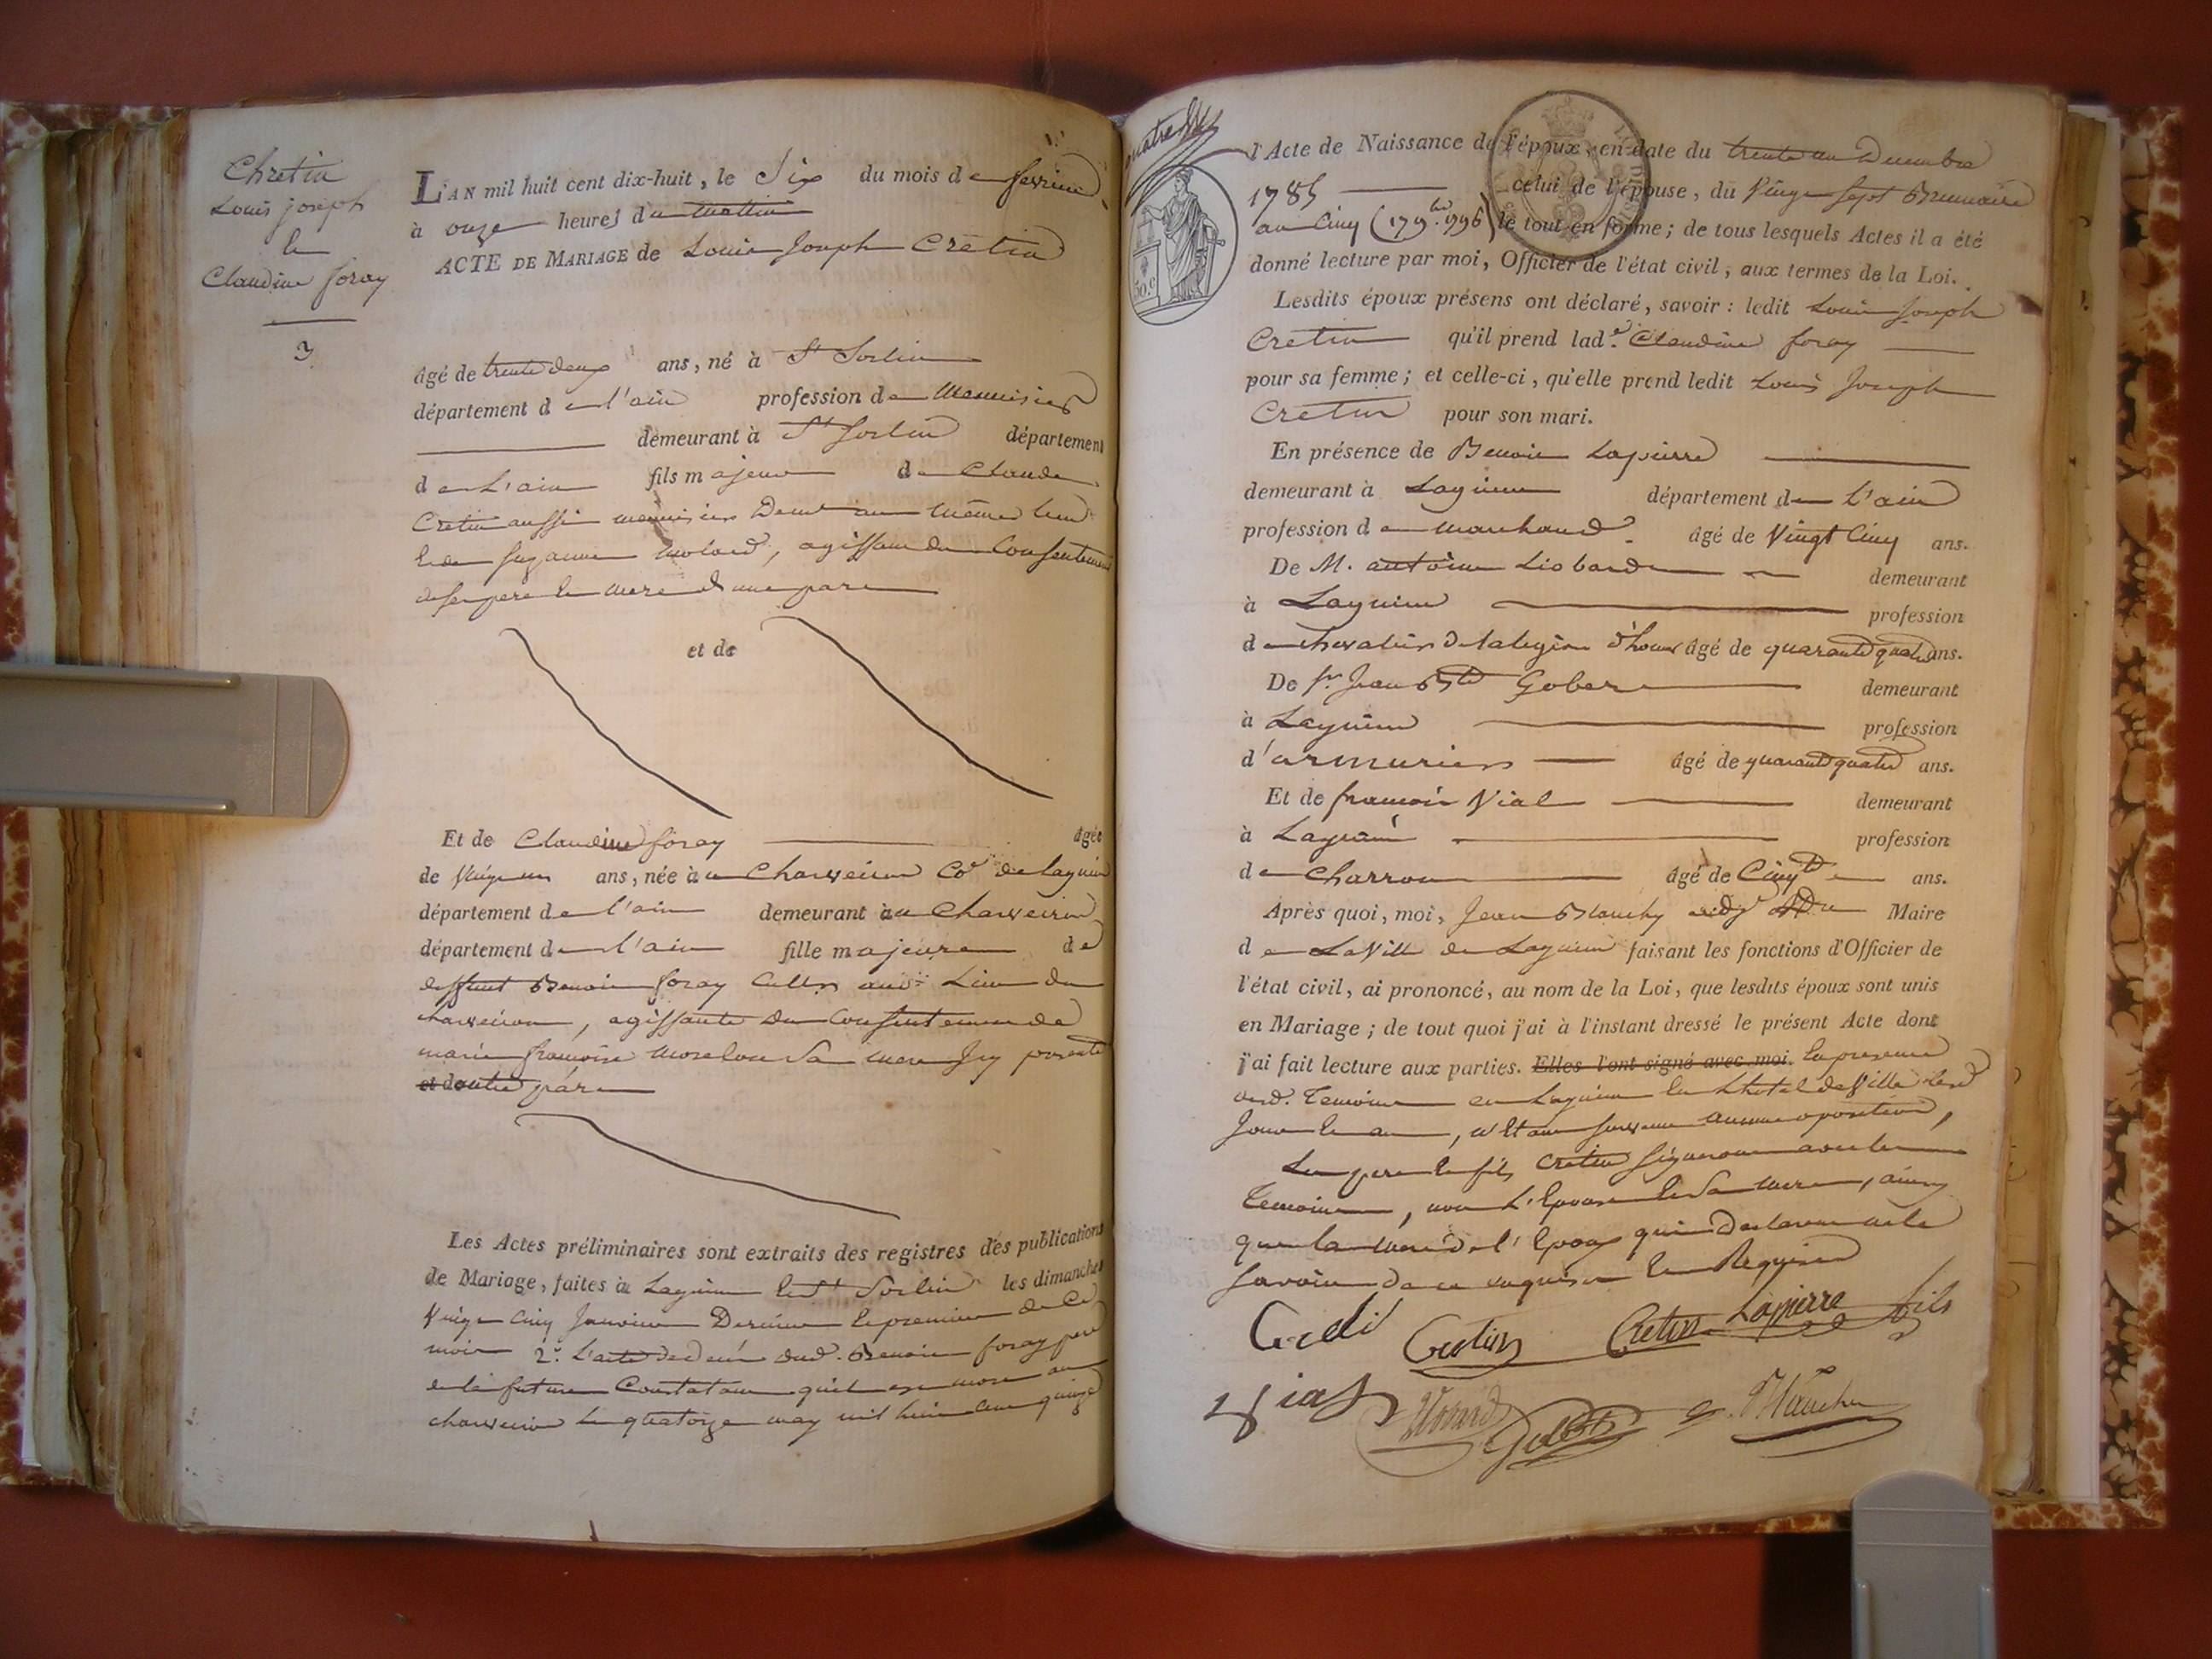 Chretin
Louis joseph
et
Claudine foray
3
L'AN mil huit cent dix-huit, le Six du mois de fevrier
à onze heures du Matin
ACTE DE MARIAGE de Louis Joseph Crétin
âgé de trente deux ans, né à St Sorlin
département de l'ain profession de Menuisier
demeurant à St Sorlin département
de L'ain fils majeur de Claude
Cretin aussi menuisier Demt au même lieu
et de suzanne molard, agissant du Consentement
de ses pere et mere d'une part
et de
Et de Claudine foray âgée
de Vingt un ans, née à Charveiron Cne de lagnieu
département de l'ain demeurant au Charveiron
département de l'ain fille majeure de
deffunt Benoit foray Cultr aud. Lieu du
charveiron, agissante du Consentement de
marie françoise morelon sa mere Icy presente
et d'autre part
Les Actes préliminaires sont extraits des registres des publications
de Mariage, faites à Lagnieu et St Sorlin les dimanches
Vingt Cinq Janvier Dernier et premier de Ce
mois 2.° L'acte de decés dud. Benoit foray pere
de la future Constatant qu'il est mort au
charveiron le quatorze may mil huit cent quinze
quatre
50.c
l'Acte de Naissance de l'époux, en date du trente un Decembre
1785 celui de l'épouse, du Vingt sept Brumaire
an Cinq (17 9bre 1796) le tout en forme; de tous lesquels Actes il a été
donné lecture par moi, Officier de l'état civil, aux termes de la Loi.
Lesdits époux présens ont déclaré, savoir : ledit Louis Joseph
Cretin qu'il prend lade Claudine foray
pour sa femme; et celle-ci, qu'elle prend ledit Louis Joseph
Cretin pour son mari.
En présence de Benoit Lapierre
demeurant à Lagnieu département de L'ain
profession de marchand âgé de Vingt Cinq ans.
De M. antoine Liobard demeurant
à Lagnieu profession
de chevalier de la légion d'honr âgé de quarante quatre ans.
De Sr Jean Bte Gobet demeurant
à Lagnieu profession
d'armurier âgé de quarante quatre ans.
Et de françois Vial demeurant
à Lagnieu profession
de charron âgé de Cinqte ans.
Après quoi, moi, Jean Blanchy adjt du Maire
de La Ville de Lagnieu faisant les fonctions d'Officier de
l'état civil, ai prononcé, au nom de la Loi, que lesdits époux sont unis
en Mariage; de tout quoi j'ai à l'instant dressé le présent Acte dont
j'ai fait lecture aux parties. Elles l'ont signé avec moi. En presence
desd. Temoins en Lagnieu en L'hotel de Ville lesd
Jour et an, n'Etant survenu aucune oposition,
Le pere et fils Cretin signeront avec les
Temoins, non L'Epouse et sa mere, ainsy
que la mere de l'Epoux qui ont declaré ne le
savoir de ce enquises et Requises
Credi Cretin Cretin Lapierre fils
Vial Gobet